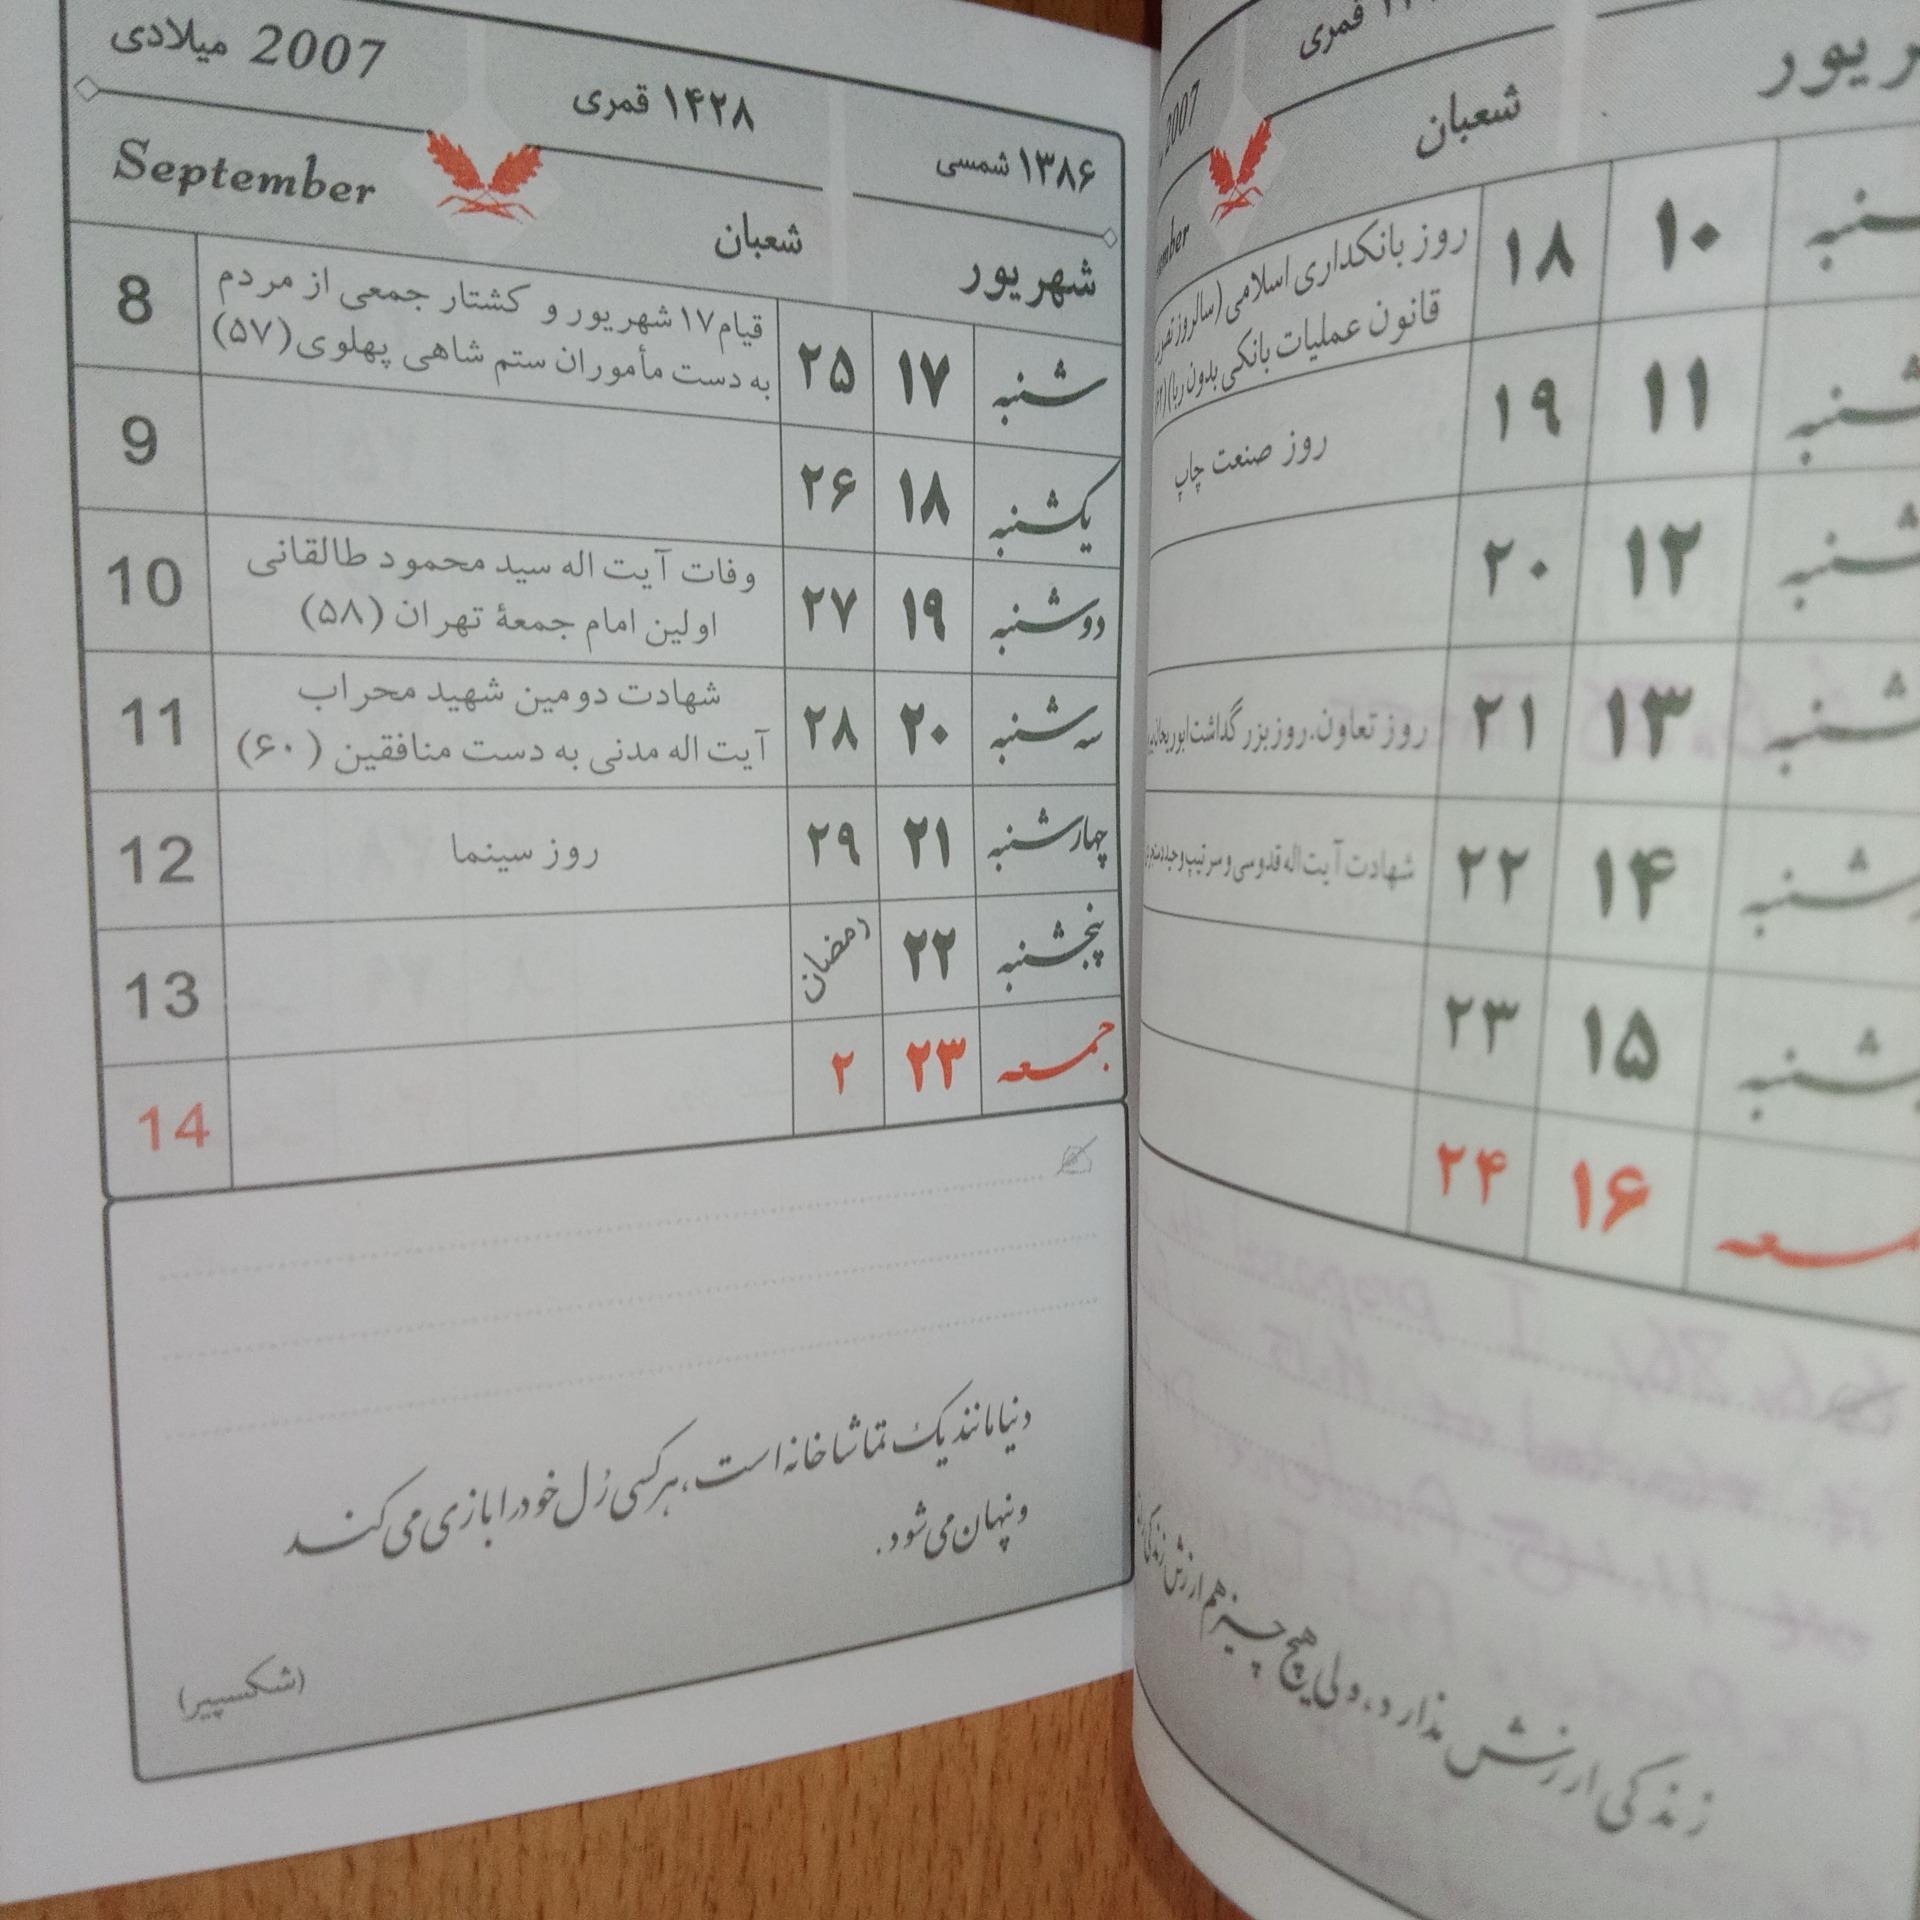 2007 میلادی
۱۴۲۸ قمری
۱۳۸۶ شمسی
September
شعبان
شهریور
شنبه ۱۷ ۲۵ قیام ۱۷ شهریور و کشتار جمعی از مردم
به دست مأموران ستم شاهی پهلوی (۵۷) 8
یکشنبه ۱۸ ۲۶ 9
دوشنبه ۱۹ ۲۷ وفات آیت اله سید محمود طالقانی
اولین امام جمعۀ تهران (۵۸) 10
سه شنبه ۲۰ ۲۸ شهادت دومین شهید محراب
آیت اله مدنی به دست منافقین (۶۰) 11
چهارشنبه ۲۱ ۲۹ روز سینما 12
پنجشنبه ۲۲ رمضان 13
جمعه ۲۳ ۲ 14
دنیا مانند یک تماشاخانه است، هر کسی رُل خود را بازی می کند
و پنهان می شود.
(شکسپیر)
قمری
2007
شعبان
۱۰ ۱۸ روز بانکداری اسلامی (سالروز
قانون عملیات بانکی بدون ربا)
۱۱ ۱۹ روز صنعت چاپ
۱۲ ۲۰
۱۳ ۲۱ روز تعاون، روز بزرگداشت
۱۴ ۲۲ شهادت آیت اله قدوسی و سرتیپ وحید
۱۵ ۲۳
۱۶ ۲۴
زندگی ارزش ندارد، ولی هیچ چیز هم ارزش زندگی